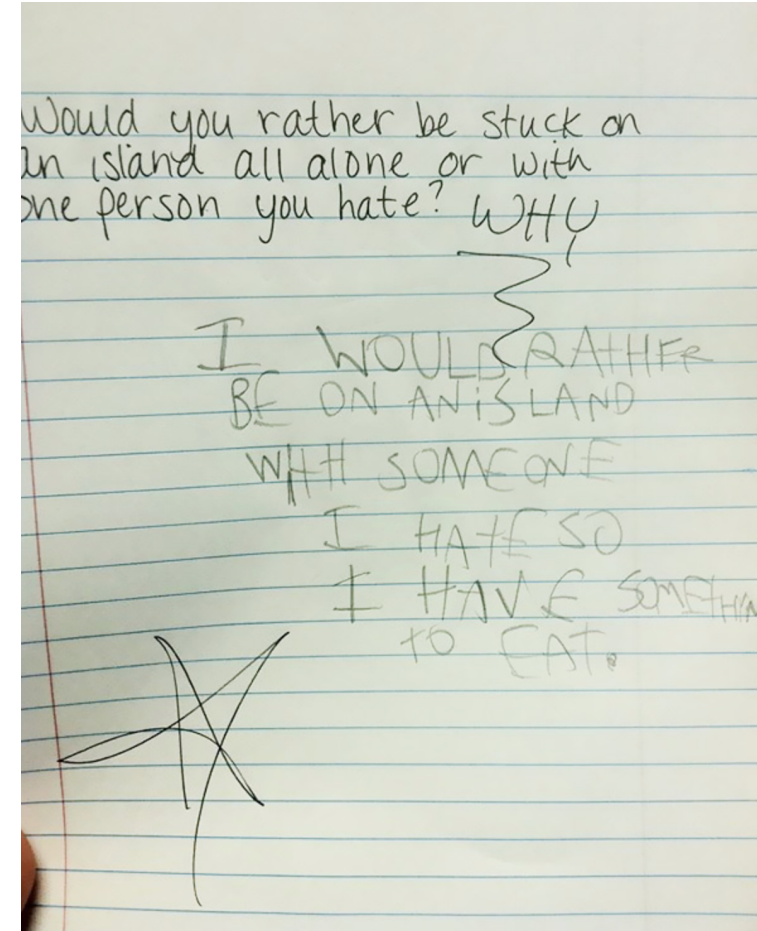 Would you rather be stuck on
an island all alone or with
one person you hate? WHY
I WOULD RATHER
BE ON AN iSLAND
WITH SOMEONE
I HATE SO
I HAVE SOMETHIN
TO EAT.